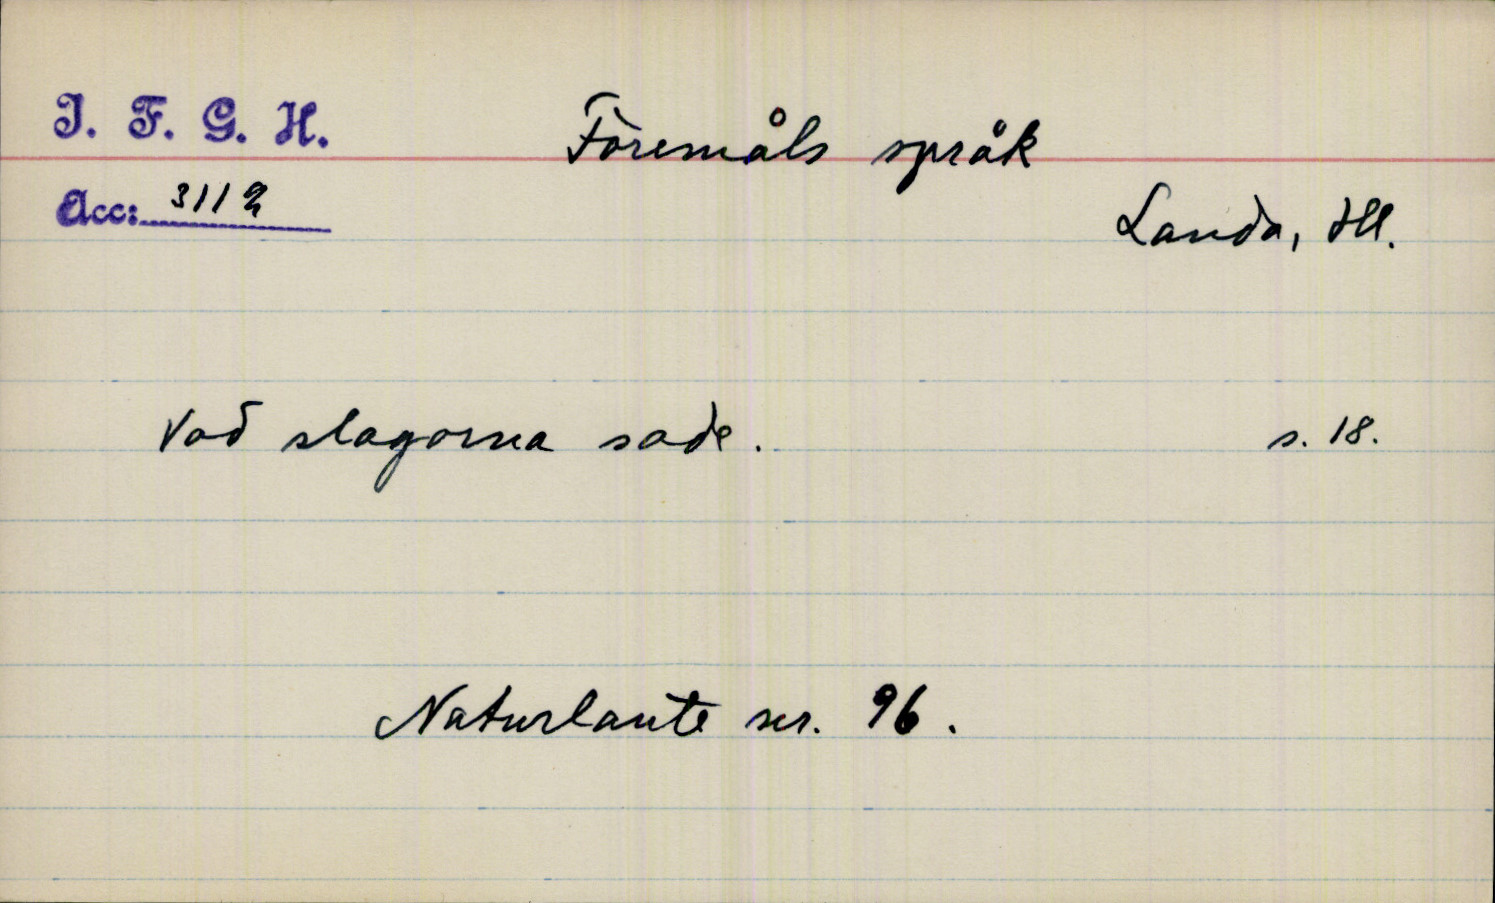 I. F. G. H.
Föremåls språk
Acc: 3112
Landa, Hll.
Vad slagorna sade. s. 18.
Naturlaute nr. 96.